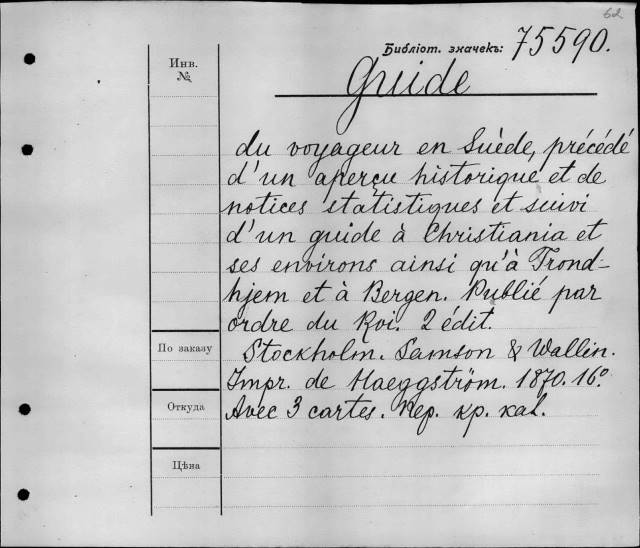 62
Библіот. значекъ: 75590.
Инв.
№
Guide
du voyageur en Suède, précédé
d'un aperçu historique et de
notices statistiques et suivi
d'un guide à Christiania et
ses environs ainsi qu'à Trond-
hjem et à Bergen. Publié par
ordre du Roi. 2 édit.
По заказу
Stockholm. Samson & Wallin.
Impr. de Haeggström. 1870. 16°.
Откуда
Avec 3 cartes. Пер. кр. кал.
Цѣна